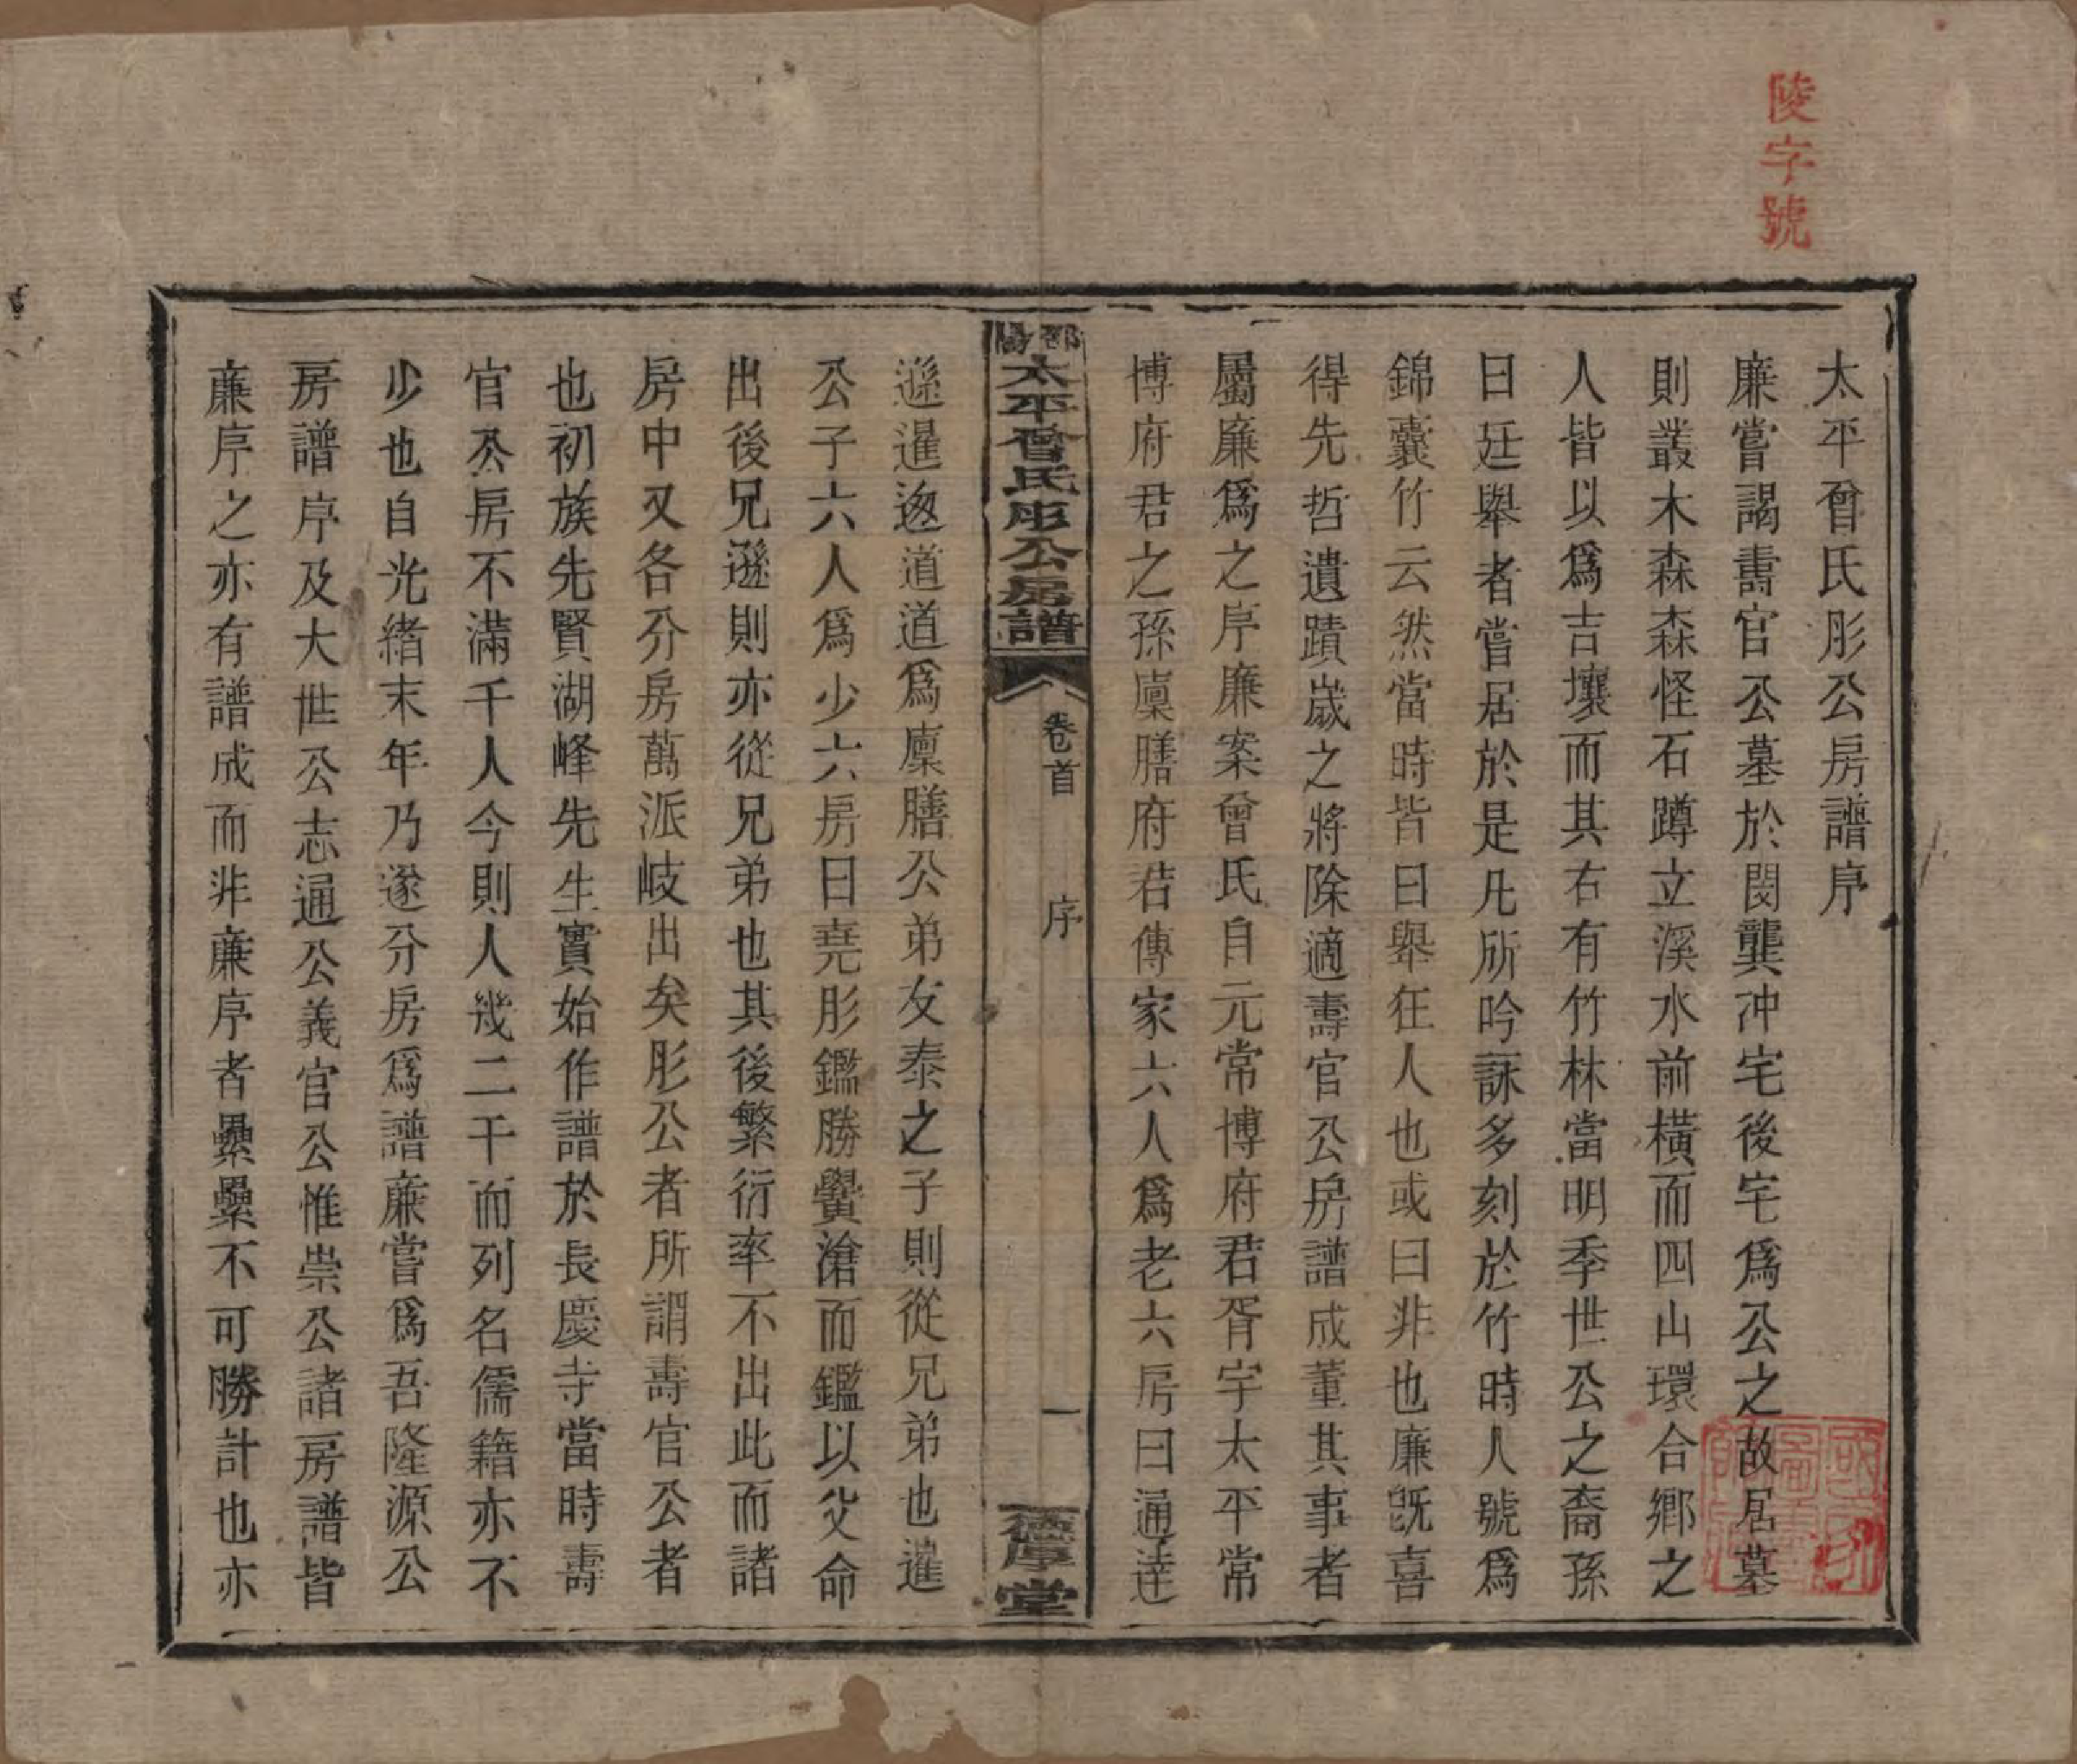 陵字號
太平曾氏彤公房譜序
廉嘗謁壽官公墓於閔龔冲宅後宅爲公之故居墓
則叢木森森怪石蹲立溪水前橫而四山環合鄉之
人皆以爲吉壤而其右有竹林當明季世公之裔孫
曰廷舉者嘗居於是凡所吟詠多刻於竹時人號爲
錦囊竹云然當時皆曰舉狂人也或曰非也廉旣喜
得先哲遺蹟嵗之將除適壽官公房譜成董其事者
屬廉爲之序廉案曾氏自元常博府君胥宇太平常
博府君之孫廩膳府君傳家六人爲老六房曰通達
邵陽太平曾氏彤公房譜
卷首
序
一
德厚堂
遜暹迥道道爲廩膳公弟友泰之子則從兄弟也暹
公子六人爲少六房曰堯彤鑑勝黌滄而鑑以父命
出後兄遜則亦從兄弟也其後繁衍率不出此而諸
房中又各分房萬派岐出矣彤公者所謂壽官公者
也初族先賢湖峰先生實始作譜於長慶寺當時壽
官公房不滿千人今則人幾二千而列名儒籍亦不
少也自光緒末年乃遂分房爲譜廉嘗爲吾隆源公
房譜序及大世公志通公義官公惟崇公諸房譜皆
廉序之亦有譜成而非廉序者纍纍不可勝計也亦